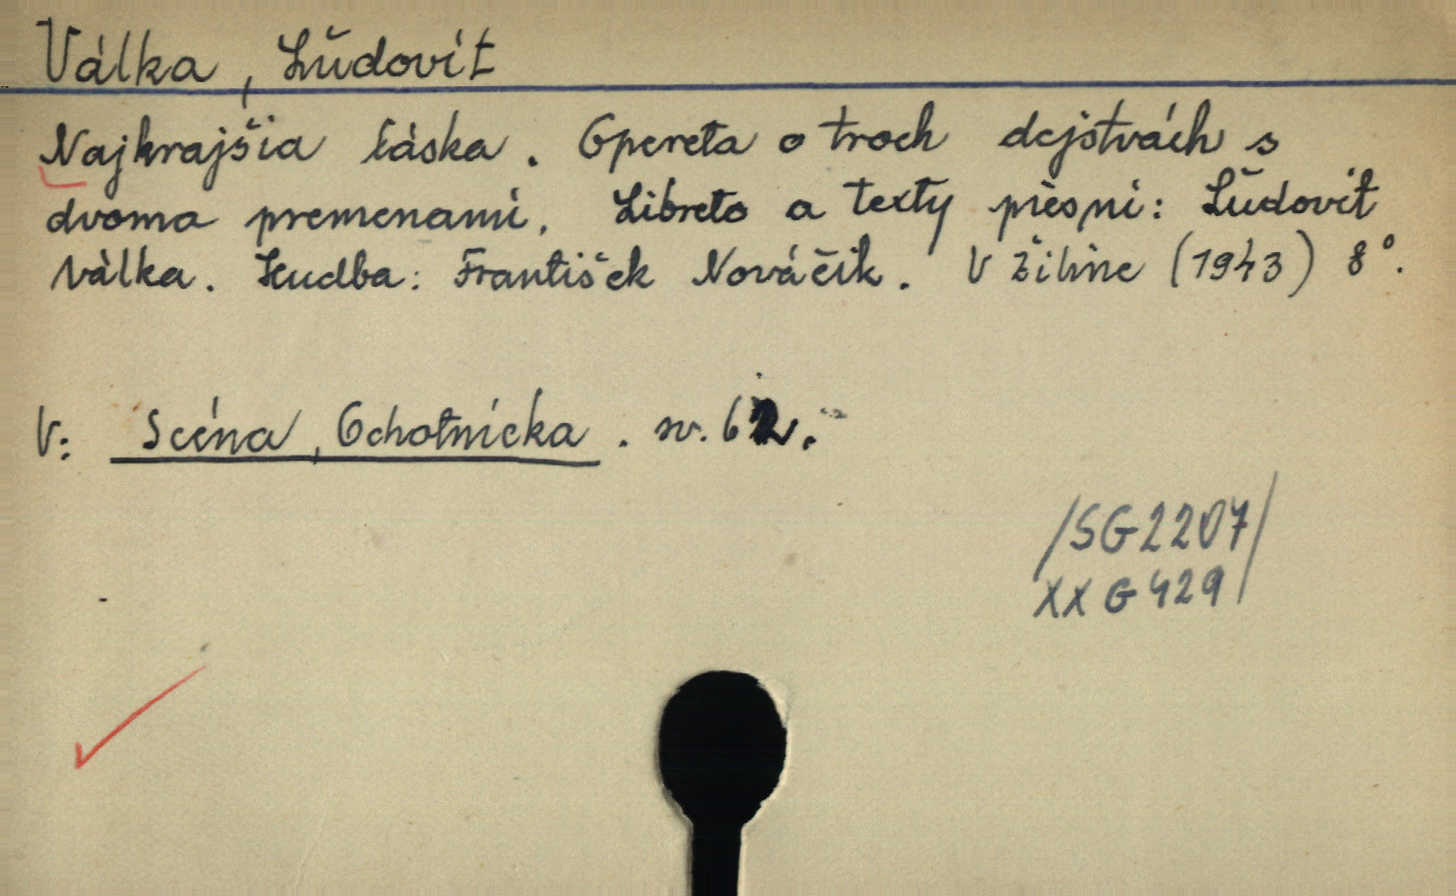 Válka, Ľudovít
Najkrajšia láska. Opereta o troch dejstvách s
dvoma premenami. Libreto a texty piesní: Ľudovít
Válka. Hudba: František Nováčik. V Žiline (1943) 8°.
V: Scéna, Ochotnícka. sv. 62.
/SG2207/
XX G 429